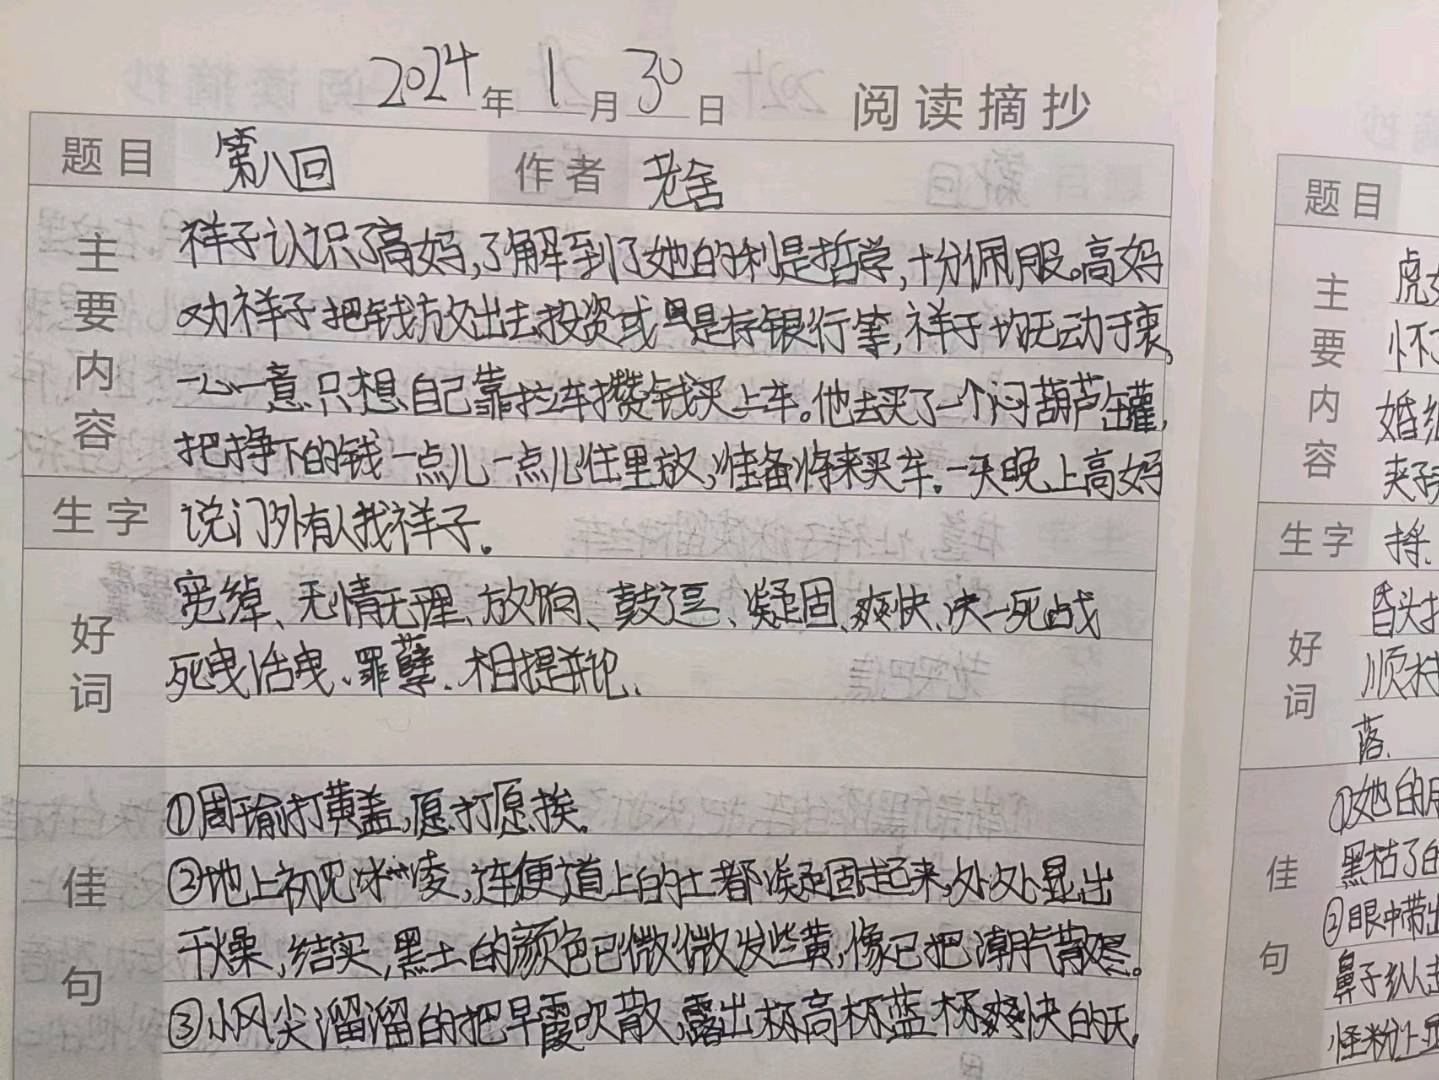 2024年1月30日 阅读摘抄
题目 第八回 作者 老舍
主要内容
祥子认识了高妈,了解到了她的利是哲学,十分佩服。高妈
劝祥子把钱放出去投资或是存银行等,祥子均无动于衷,
一心一意只想自己靠拉车攒钱买上车。他去买了一个闷葫芦罐,
把挣下的钱一点儿一点儿往里放,准备将来买车。一天晚上高妈
生字 说门外有人找祥子。
好词
宽绰、无情无理、放饷、鼓逗、凝固、爽快、决一死战
死曳活曳、罪孽、相提并论、
佳句
①周瑜打黄盖,愿打愿挨。
②地上初见冰凌,连便道上的土都凝固起来,处处显出
干燥,结实,黑土的颜色已微微发些黄,像已把潮气散尽。
③小风尖溜溜的把早霞吹散,露出极高极蓝极爽快的天,
题目
主要内容
虎
怀
婚
夹
生字 择.
好词
昏头
顺
落.
佳句
①她的
黑枯了的
②眼中带出
鼻子纵
怪粉上